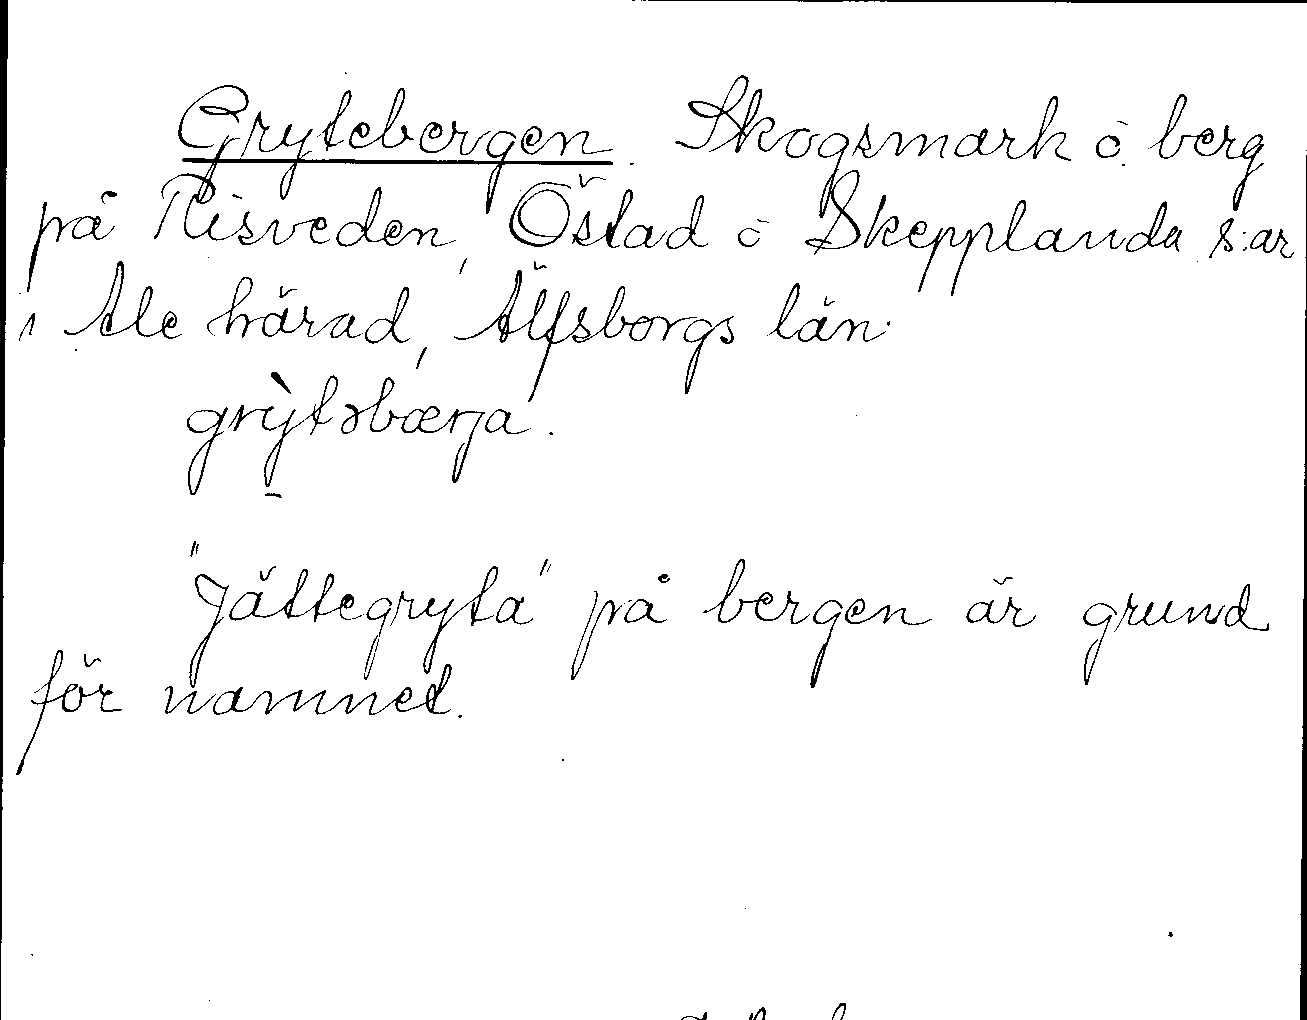 Grytebergen. Skogsmark o. berg
på Risveden, Östad o Skepplanda s:ar
i Ale härad, Älfsborgs län.
grỳtəbærja.
"Jättegryta" på bergen är grund
för namnet.